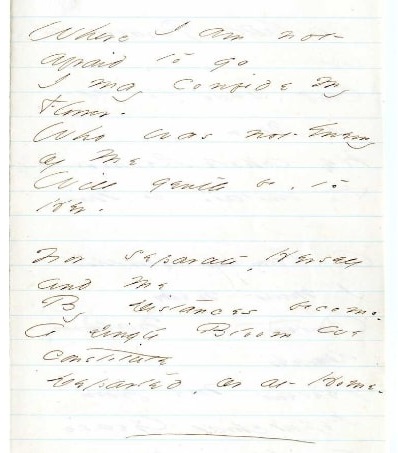 Where I am not
afraid to go
I may confide my
Flower -
Who was not Enemy
of Me
Will gentle be, to
Her.
Nor separate, Herself
and Me
By Distances become -
A single Bloom we
constitute
Departed, or at Home -